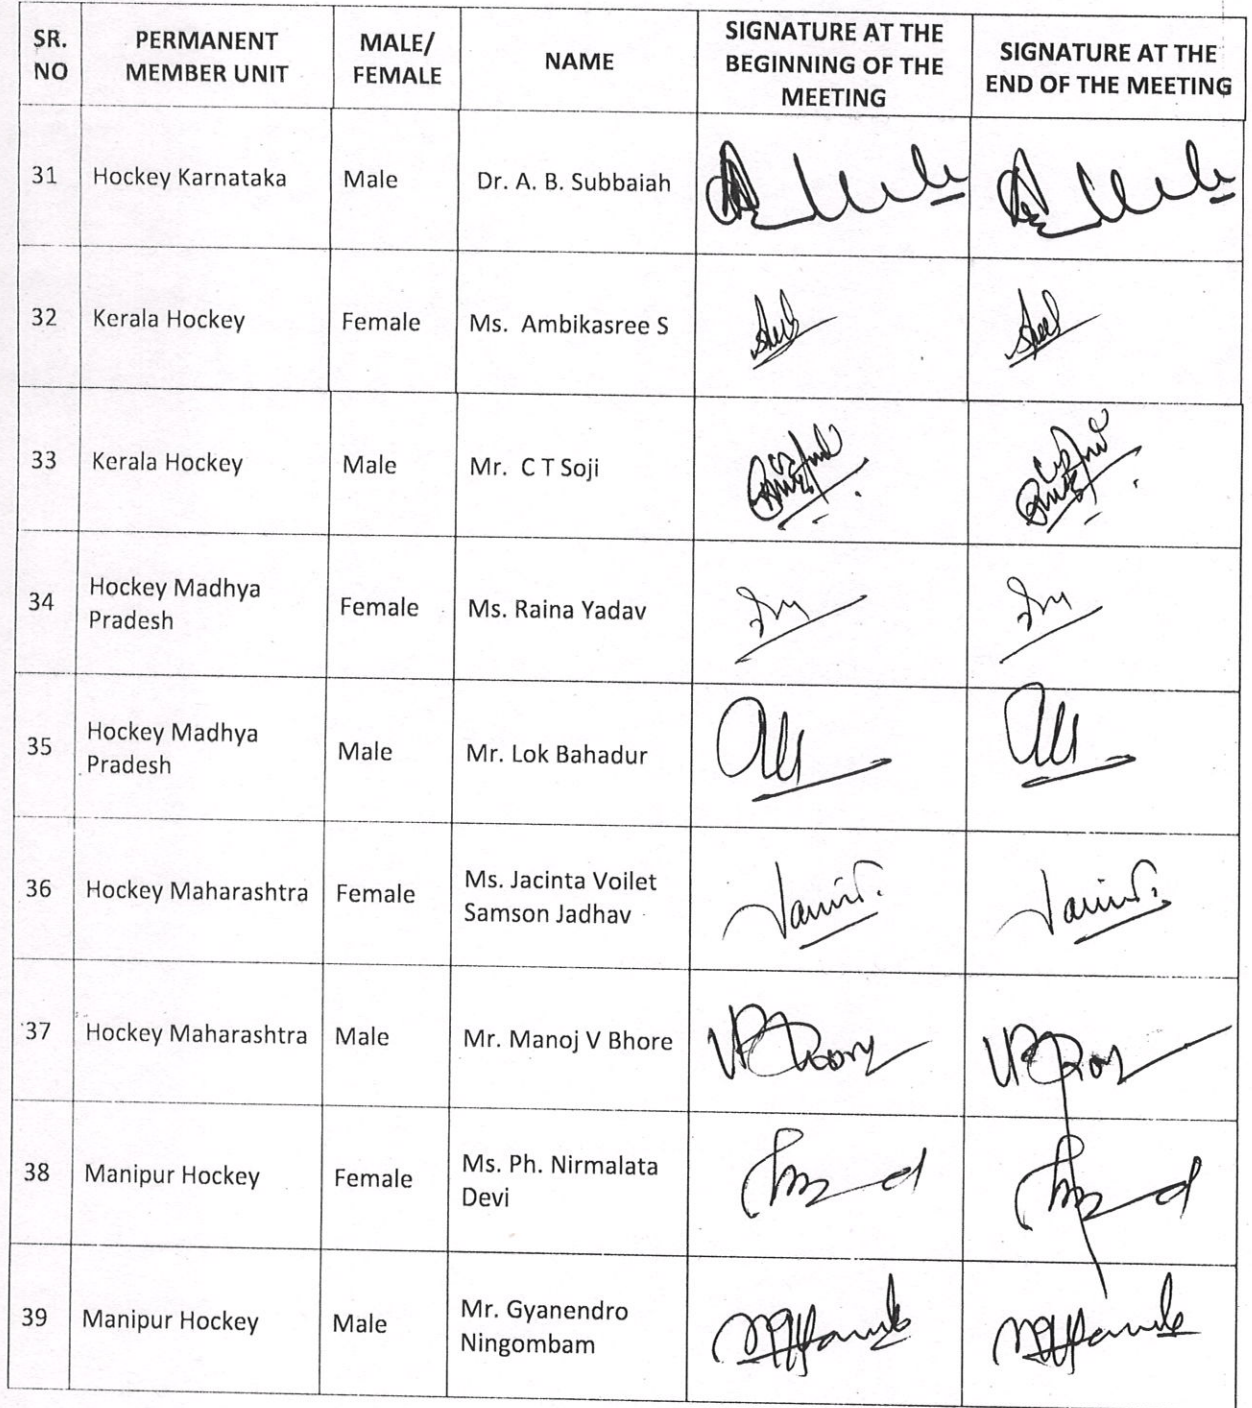 SR.
NO
PERMANENT
MEMBER UNIT
MALE/
FEMALE
NAME
SIGNATURE AT THE
BEGINNING OF THE
MEETING
SIGNATURE AT THE
END OF THE MEETING
31
Hockey Karnataka
Male
Dr. A. B. Subbaiah
32
Kerala Hockey
Female
Ms. Ambikasree S
33
Kerala Hockey
Male
Mr. C T Soji
34
Hockey Madhya
Pradesh
Female
Ms. Raina Yadav
35
Hockey Madhya
Pradesh
Male
Mr. Lok Bahadur
36
Hockey Maharashtra
Female
Ms. Jacinta Voilet
Samson Jadhav
37
Hockey Maharashtra
Male
Mr. Manoj V Bhore
38
Manipur Hockey
Female
Ms. Ph. Nirmalata
Devi
39
Manipur Hockey
Male
Mr. Gyanendro
Ningombam